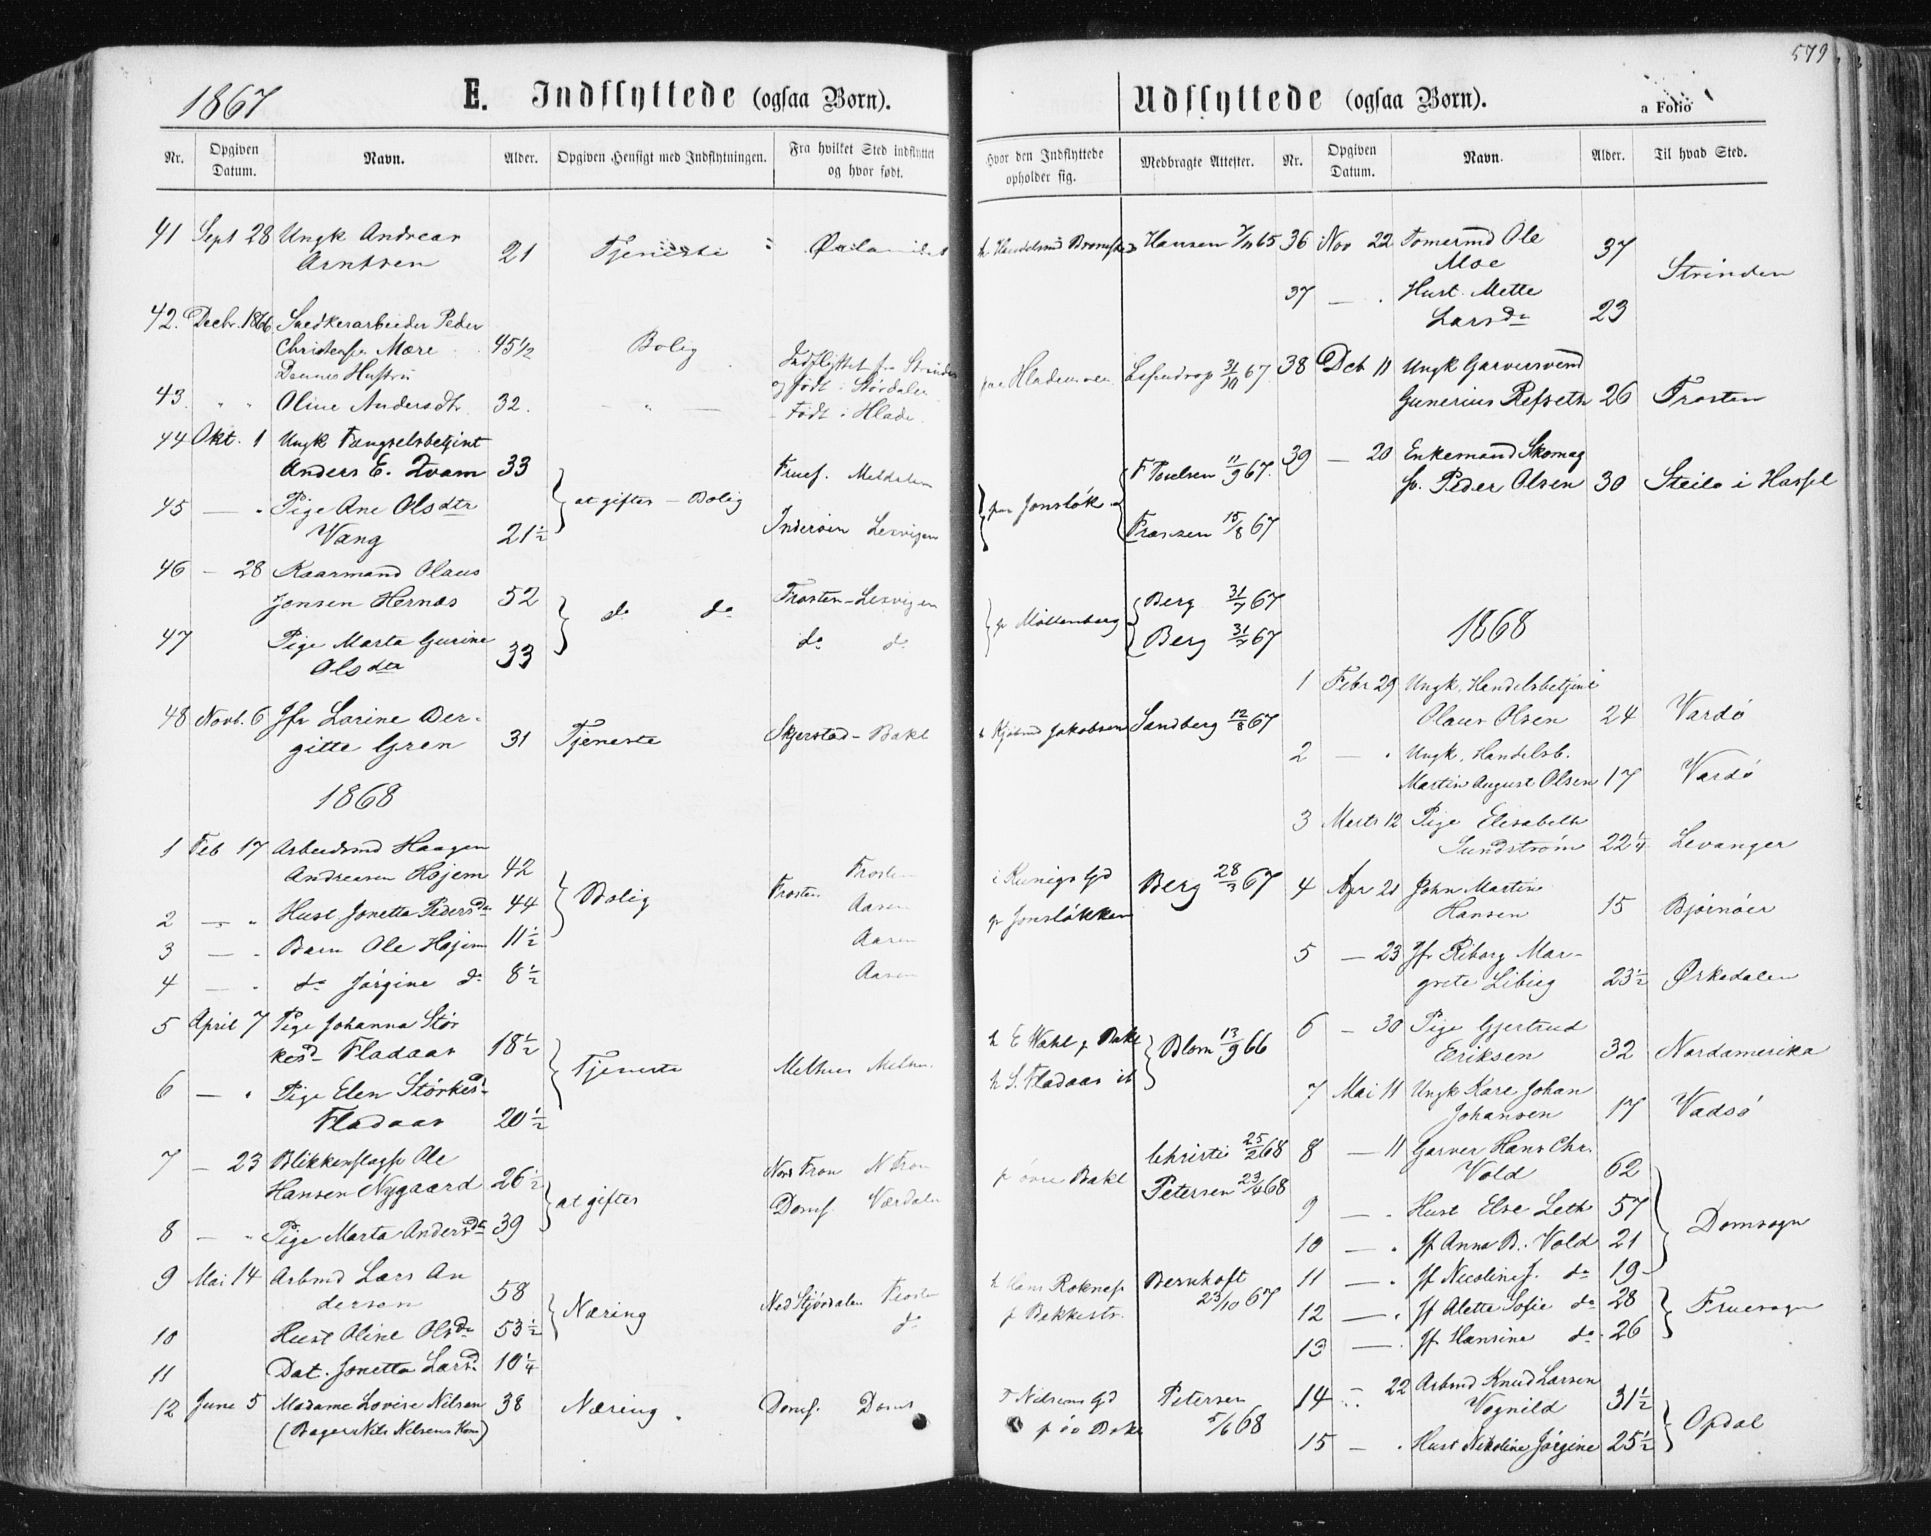 579
1867
E. Indflyttede (ogsaa Børn).
Udflyttede (ogsaa Børn).
a Folio
Nr.
Opgiven Datum.
Navn.
Alder.
Opgiven Hensigt med Indflytningen.
Fra hvilket Sted indflyttet og hvor født.
Hvor den Indflyttede opholder sig.
Medbragte Attester.
Nr.
Opgiven Datum.
Navn.
Alder.
Til hvad Sted.
41 Sept 28 Ungk Andreas
Arntsen 21 Tjeneste Hansen 65
42. Decbr. 1866 Snedkerarbeider Peder
Christensen Mære 45 1/2 Bolig Indflyttet fra Strinden
Dennes Hustru og født i Størdalen
43. " " Oline Andersdtr 32. — " — Født i Hlade 31/10 67.
44 Okt. 1 Ungk Fængselsbetjent
Anders E. Qvam 33 Fruef. Meldalen F Poulsen 11/9 67.
at giftes – Bolig
45 — " Pige Ane Olsdtr
Vang 21 1/2 Inderøen Lexvigen 15/8 67
46 — 28 Kaarmand Olaus
Jonsen Hernæs 52 do do Frosten – Lexvigen p Møllenberg Berg 31/7 67
47 Pige Marta Gurine
Olsdtr 33 do do Berg 31/7 67
48 Novb. 6 Jfr Larine Ber-
gitte Gren 31 Tjeneste Skjerstad – Bakl Jakobsen Sandberg 12/8 67
1868
1 Feb 17 Arbeidsmd Haagen
Andreasen Højem 42 Bolig Frosten Frosten Berg 28/3 67
2 — " Hust Jonetta Pedersdr 44 Aasen p Jonsløkken
3 — " Barn Ole Højem 11 1/2 Aasen
4 — " do Jørgine do 8 1/2 Aasen
5 April 7 Pige Johanna Stør
kesd Fladaas 18 1/2 Tjeneste Melhus Melhus h E Wahl p Bakl Blom 13/9 66
6 — " Pige Elen Størkesd
Fladaas 20 1/2 h S. Fladaas ib
7 — 23 Blikkenslagsv Ole
Hansen Nygaard 26 1/2 at giftes Nord Fron N Fron p øvre Bakl Christie 25/2 68
8 — " Pige Marta Andersdr 39 Domf. Værdalen Petersen 23/4 68
9 Mai 14 Arbmd Lars An
dersen 58 Næring Ned Stjørdalen Frosten Bernhoft 23/10 67
10 Hust Oline Olsdr 53 1/2 do p Bakkestr.
11 Dat. Jonetta Larsd 10 1/4
12 June 5 Madame Lovise Nilsen 38 Næring. Domf. Doms F Nilsens Gd Petersen
(Bager Nils Nilsens Kone) p øv Bakl 5/6 68
36 Nov 22 Tømermd Ole
Moe 37 Strinden
37 — . Hust. Mette
Larsdr 23
38 Deb 11 Ungk Garversvend
Gunerius Refseth 26 Frosten
39 — 20 Enkemand Skomag
sv. Peder Olsen 30 Steilo i Hassel
1868
1 Febr 29 Ungk. Handelsbetjent
Olaus Olsen 24 Vardø
2 — . Ungk. Handelsb.
Martin August Olsen 17 Vardø
3 Marts 12 Pige Elisabeth
Sundstrøm 22 1/4 Levanger
4 Apr 21 John Martin
Hansen 15 Bjørnøer
5 — 23 Jfr Riborg Mar-
grete Libieg 23 1/2 Ørkedalen
6 — 30 Pige Gjertrud
Eriksen 32 Nordamerika
7 Mai 11 Ungk Kare Johan
Johansen 17 Vadsø
8 — 11 Garver Hans Chr.
Vold 62 Domsogn
9 — . Hust Else Leth 57
10 — . Jf Anna B. Vold 21
11 — . Jf Nicoline J. do 19
12 — . Jf Aletta Sofie do 28 Fruesogn
13 — . Jf Hansine do 26
14 — 22 Arbmd Knud Larsen
Vognild 31 1/2 Opdal
15 — . Hust Nikoline Jørgine 25 1/2